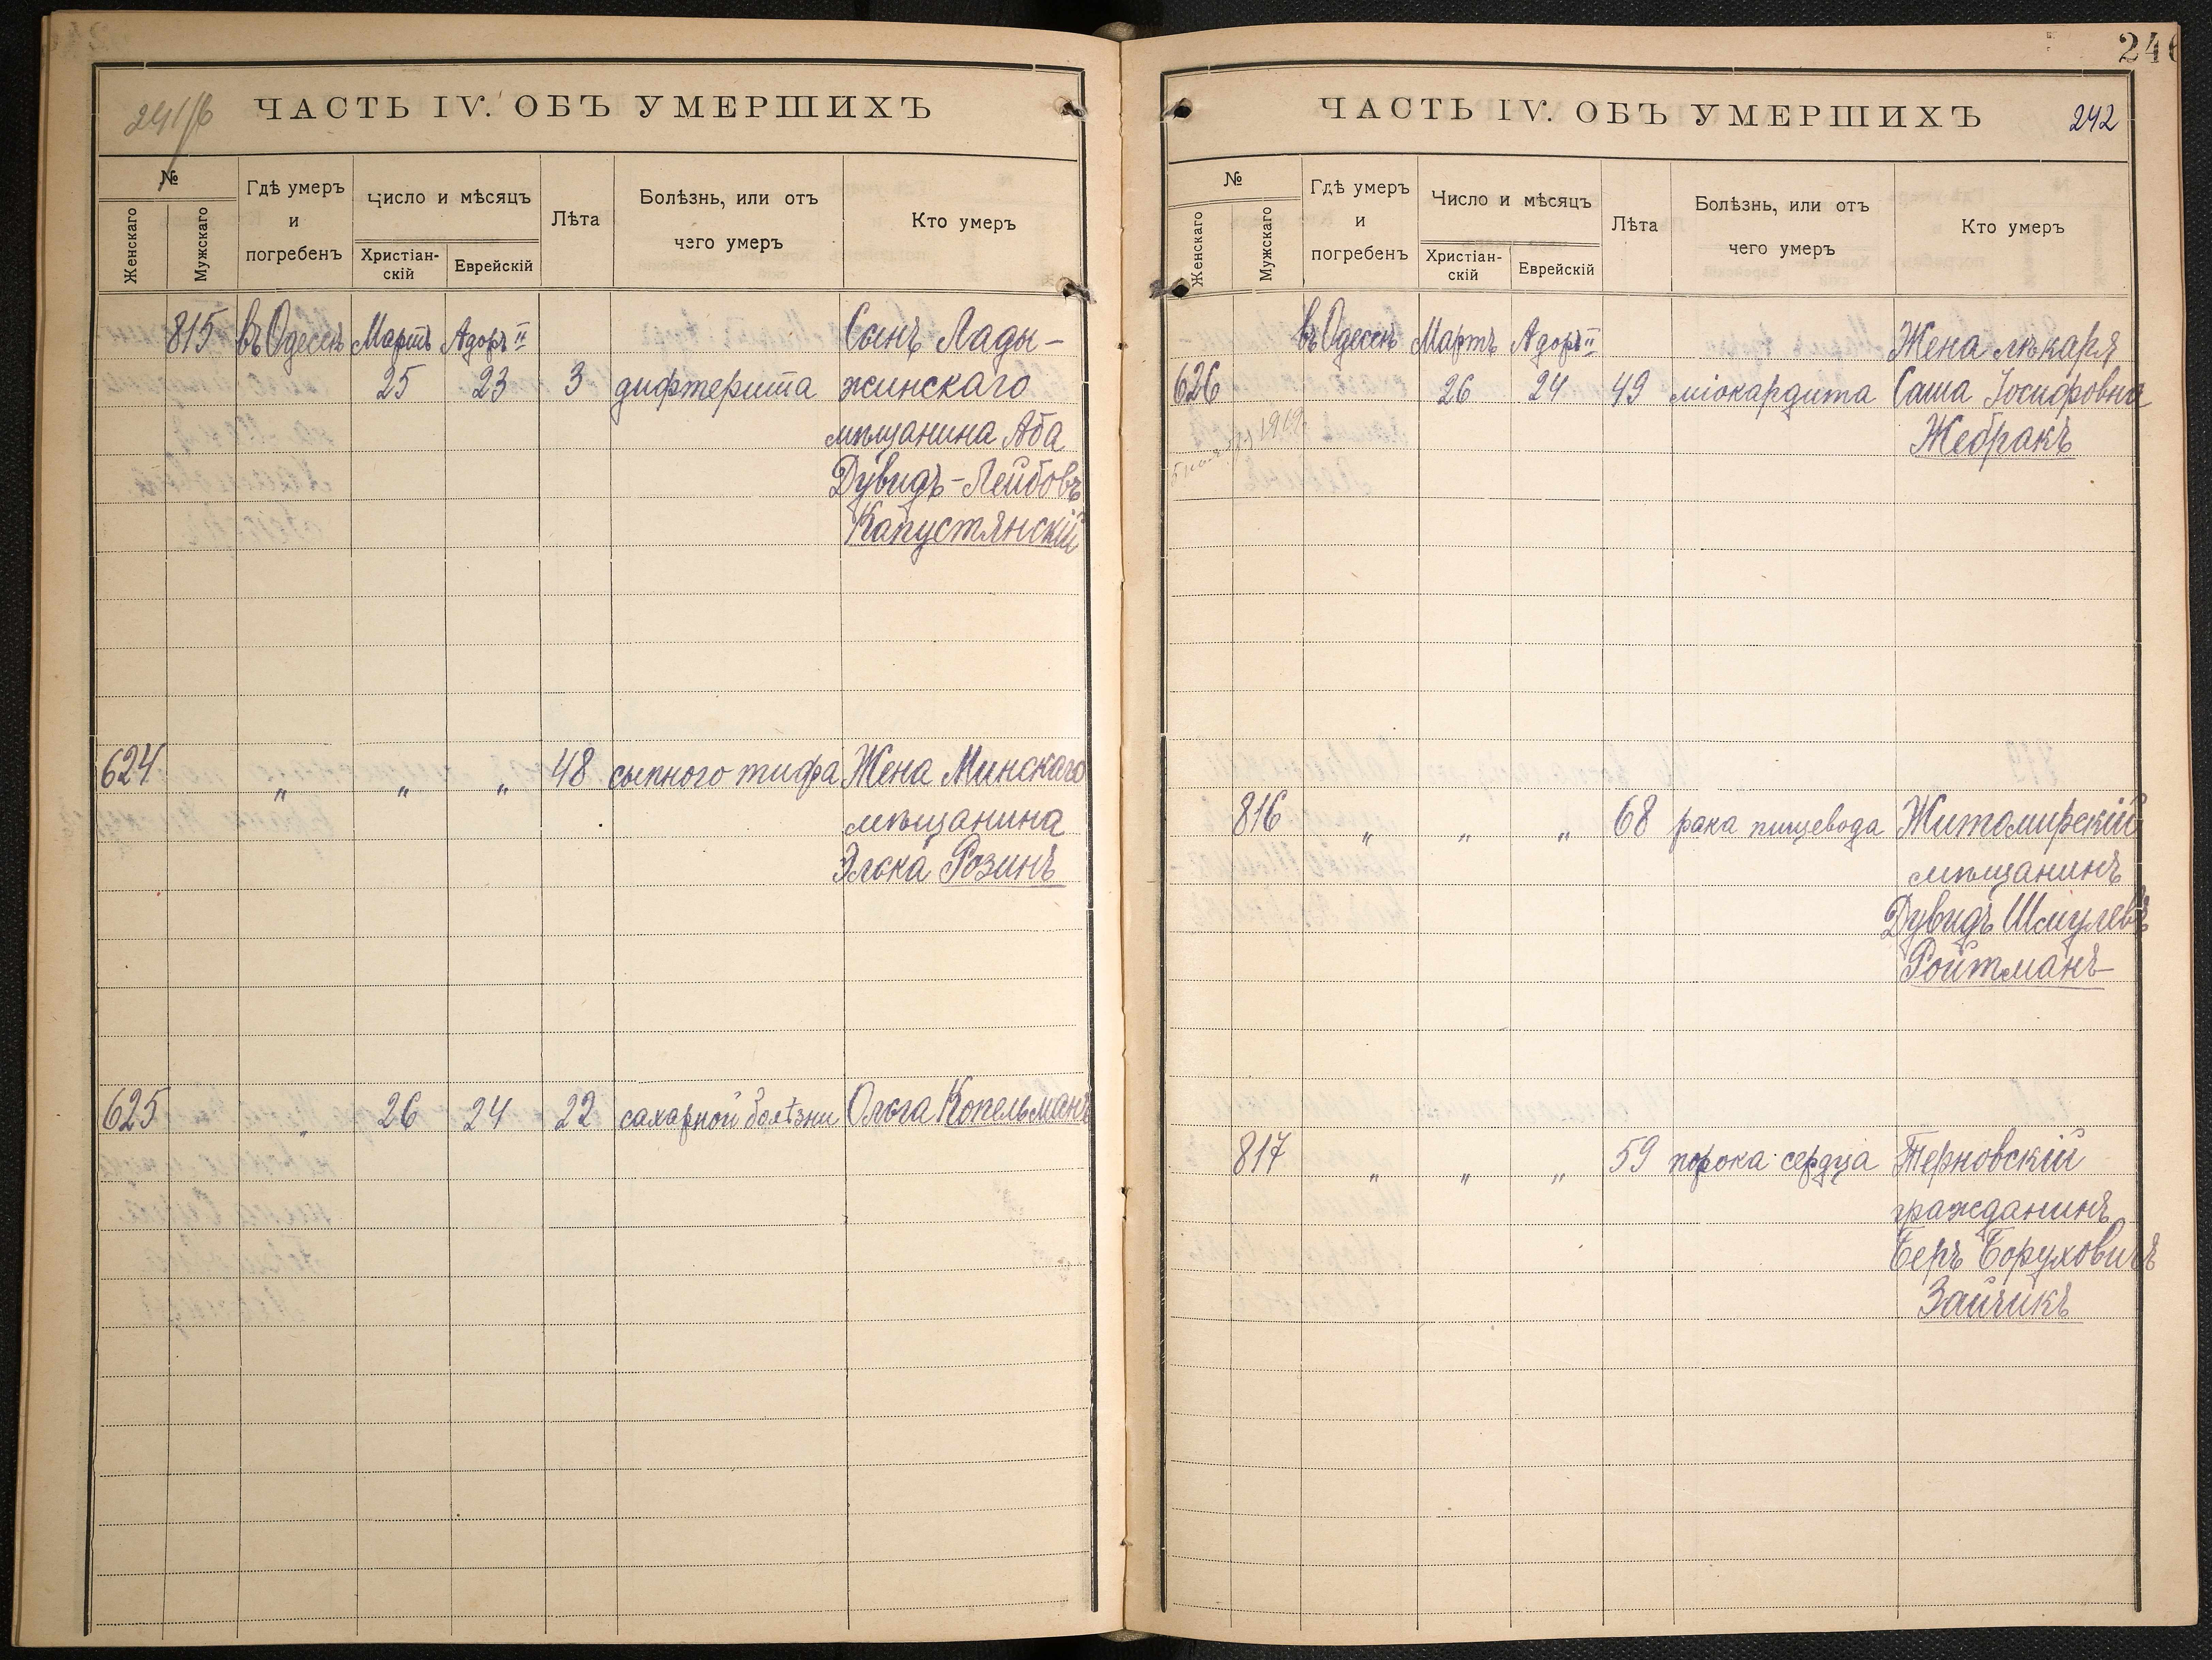 241/б
ЧАСТЬ IV. ОБЪ УМЕРШИХЪ
№
Женскаго
Мужскаго
Гдѣ умеръ и погребенъ
Число и мѣсяцъ
Христіан-скій
Еврейскій
Лѣта
Болѣзнь, или отъ чего умеръ
Кто умеръ
815 въ Одессѣ Мартъ Адоръ II Сынъ Лады-
25 23 3 дифтерита жинскаго
мѣщанина Аба
Дувидъ-Лейбовъ
Капустянскій
624 " " " 48 сыпного тифа Жена Минскаго
мѣщанина
Элька Розинъ
625 " 26 24 22 сахарной болѣзни Ольга Копельманъ
246
ЧАСТЬ IV. ОБЪ УМЕРШИХЪ 242
№
Женскаго
Мужскаго
Гдѣ умеръ и погребенъ
Число и мѣсяцъ
Христіан-скій
Еврейскій
Лѣта
Болѣзнь, или отъ чего умеръ
Кто умеръ
въ Одессѣ Мартъ Адоръ II Жена лѣкаря
626 26 24 49 міокардита Саша Іосифовна
1919
Жебракъ
816 " " " 68 рака пищевода Житомирскій
мѣщанинъ
Дувидъ Шмулевъ
Ройтманъ
817 " " " 59 порока сердца Терновскій
гражданинъ
Беръ Боруховичъ
Зайчикъ